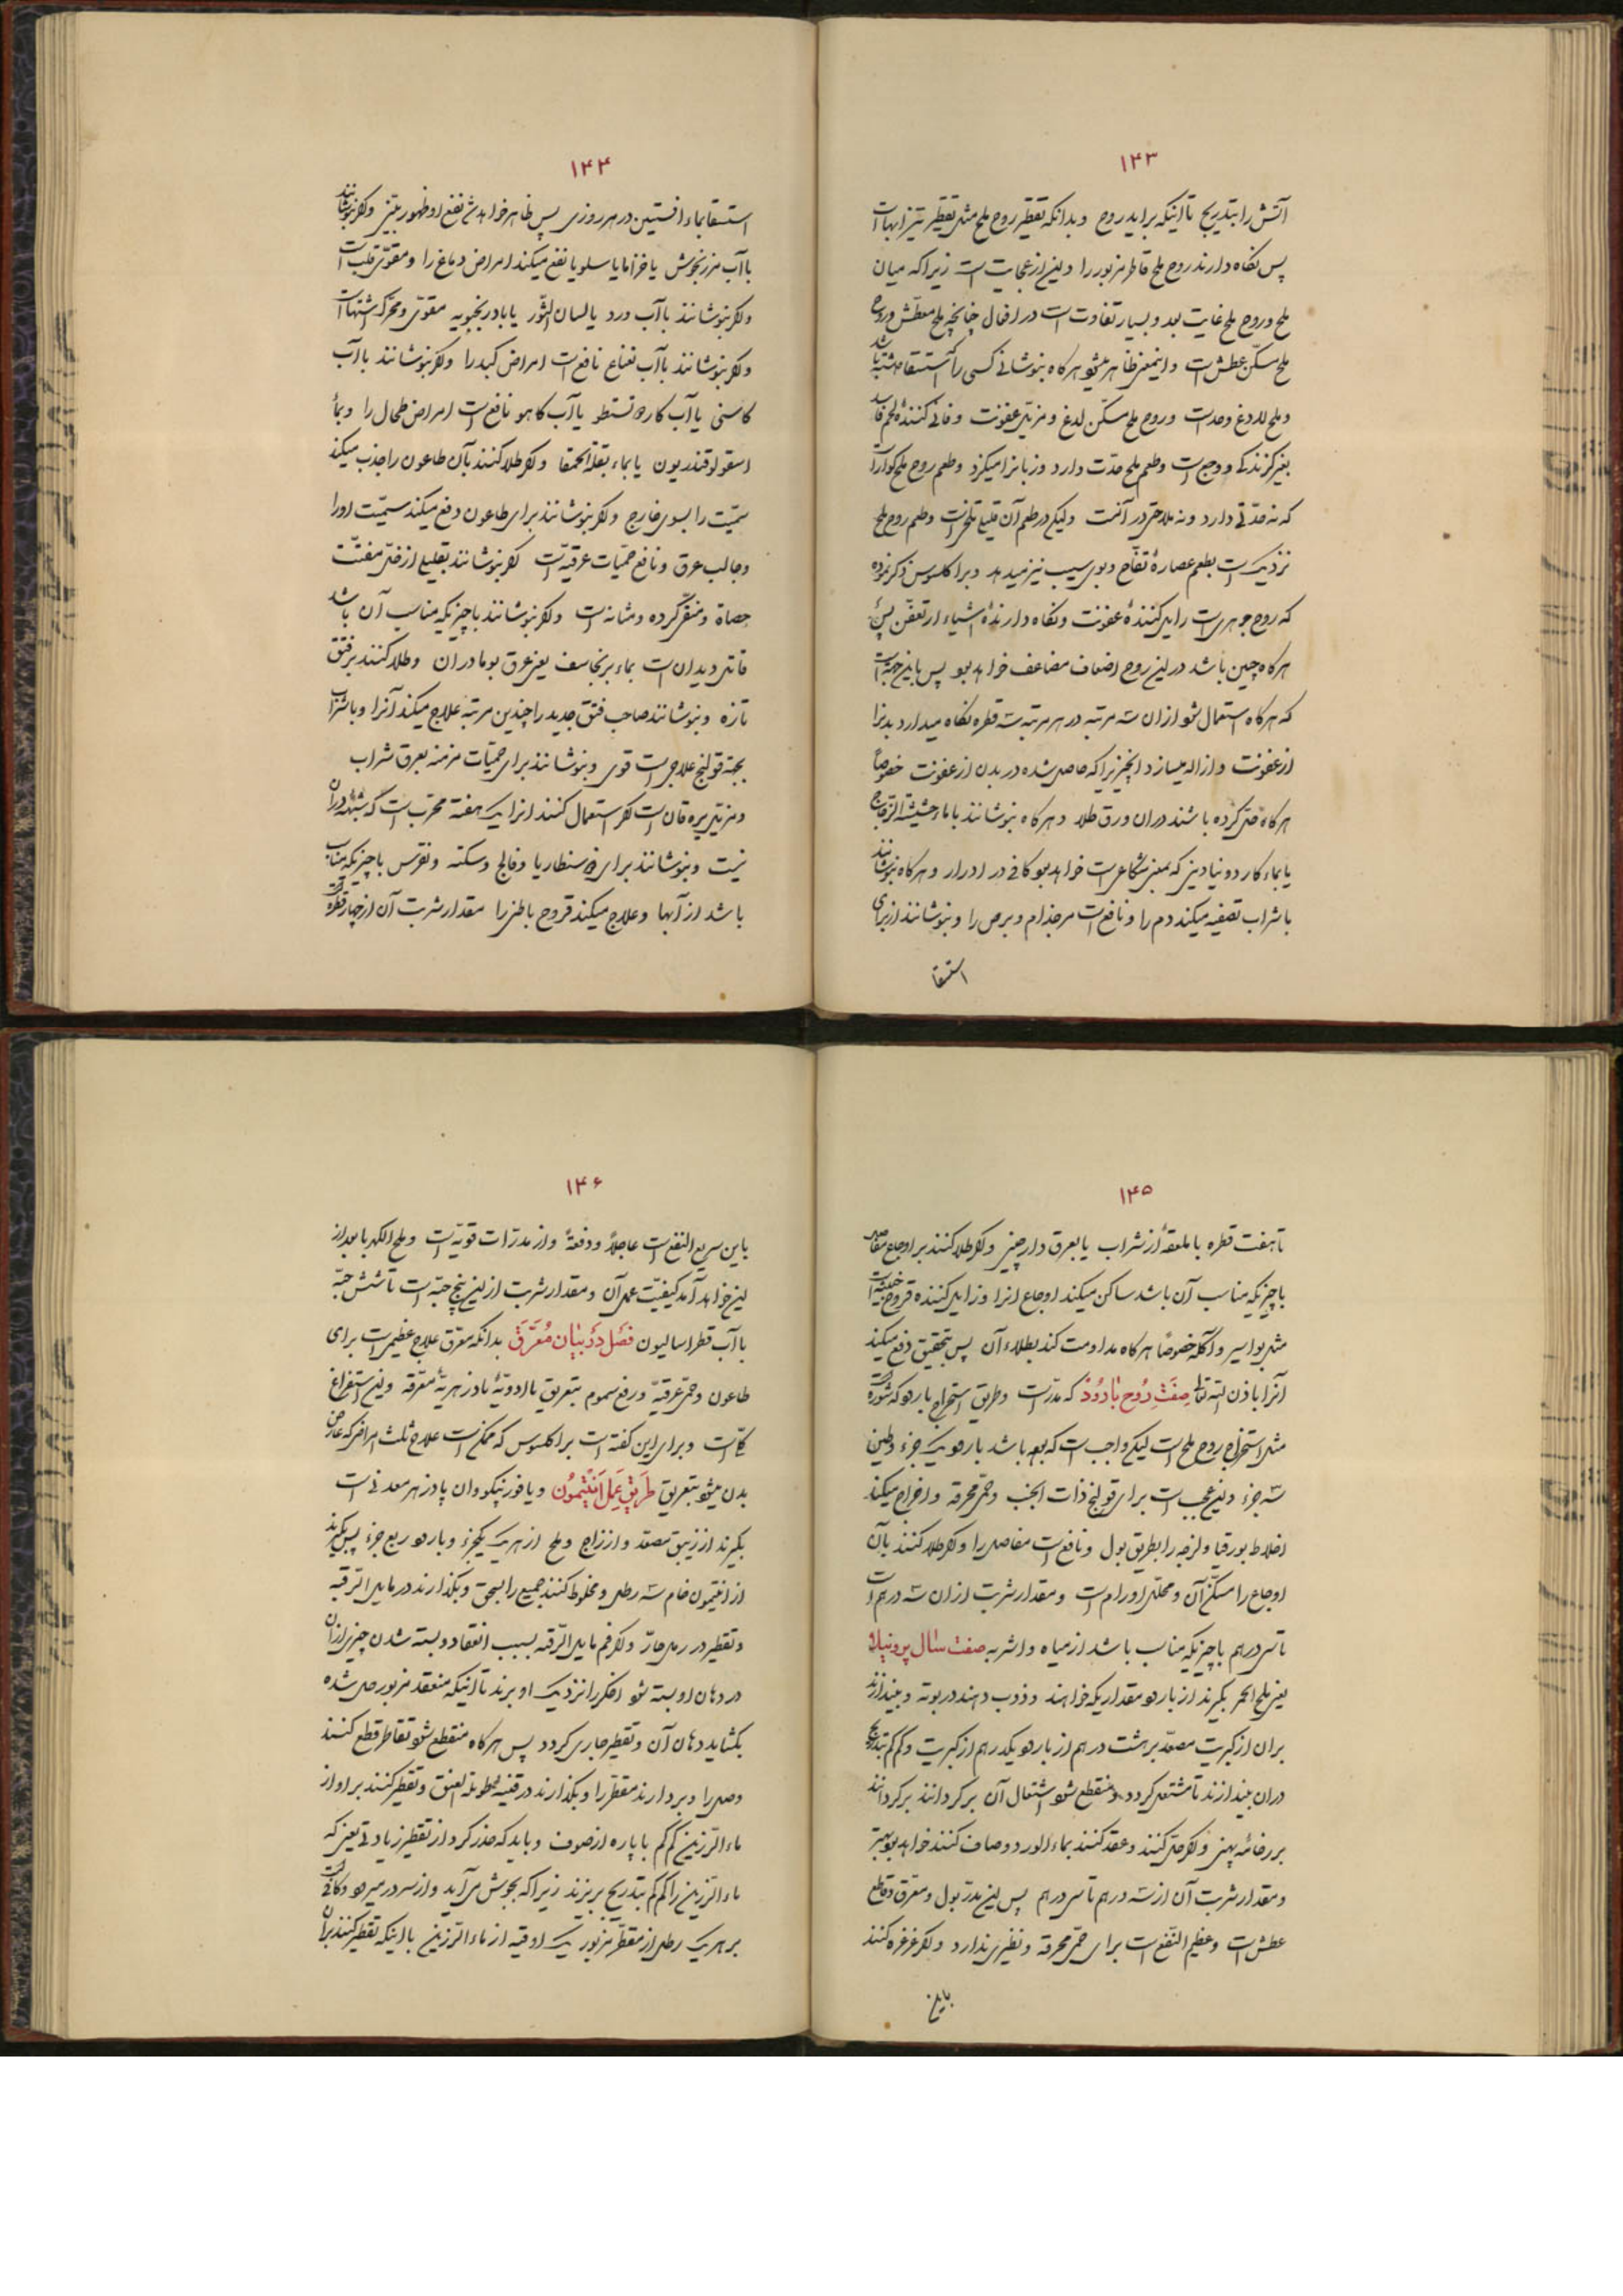 ۱۴۳
آتش را بتدریج تا اینکه براید روح و بدانکه تقطیر روح ملح مثل تقطیر تیزابهاست
پس نکاه دارند روح ملح قاطر مزبور را و این از عجایبست زیرا که میان
ملح و روح ملح غایت بعد و بسیار تفاوتست در افعال چنانچه ملح معطش و روح
ملح مسکن عطش است و اینمعنی ظاهر میشود هرکاه بنوشانی کسی را که استسقا داشته باشد
و ملح لداغ و حاد است و روح ملح مسکن لدغ و مزیل عفونت و فانی کننده لحم فاسد
بغیر کزندکی و وجع است و طعم ملح حدّت دارد و زبانرا میکزد و طعم روح ملح کواراست
که نه حدّتی دارد و نه ملاحتی در آنست ولیکن در طعم آن قلیل تلخی است و طعم روح ملح
نزدیک است بطعم عصارهٔ تفاح و بوی سیب نیز میدهد و براکلسوس ذکر نموده
که روح جوهریست زایل کنندهٔ عفونت و نکاه دارندهٔ اشیاء از تعفن پس
هرکاه چنین باشد در این روح اضعاف مضاعف خواهد بود پس باین جهت است
که هرکاه استعمال شود ازان سه مرتبه در هر مرتبه سه قطره نکاه میدارد بدنرا
از عفونت و ازاله میسازد انچیزیرا که حاصل شده در بدن از عفونت خصوصاً
هرکاه حل کرده باشند دران ورق طلا و هرکاه بنوشانند با ماء حشیشة الزجاج
یا بماء کاردونیادینی که بمعنی شکاعی است خواهد بود کافی در ادرار و هرکاه بنوشانند
باشراب تصفیه میکند دم را و نافعست مرجذام و برص را و بنوشانند از برای
استسقا
۱۴۴
استسقا بماء افسنتین در هر روزی پس ظاهر خواهد شد نفع او ظهور بیّنی و اکر بنوشانند
باآب مرزنجوش یا خزاما یا سلویا نفع میکند امراض دماغ را و مقوّی قلب است
و اکر بنوشانند باآب ورد یا لسان الثّور یا بادرنجبویه مقوّی و محرّک اشتهاست
و اکر بنوشانند باآب نعناع نافع است امراض کبد را و اکر بنوشانند باآب
کاسنی یا آب کاردو تستطو یا آب کاهو نافع است امراض طحال را و بماء
اسقولوقندریون یا بماء بقلة الحمقا و اکر طلا کنند بآن طاعون را جذب میکند
سمیّت را بسوی خارج و اکر بنوشانند برای طاعون دفع میکند سمیّت اورا
و جالب عرق و نافع حمیّات عرقیّه است اکر بنوشانند بقلیلی از خل مفتّت
حصاة و منقّی کرده و مثانه است و اکر بنوشانند باچیزیکه مناسب آن باشد
قاتل دیدان است بماء برنجاسف یعنی عرق بومادران و طلا کنند بر فتق
تازه و بنوشانند صاحب فتق جدید را چندین مرتبه علاج میکند آنرا و باشراب
بجهة قولنج علاجی است قوی و بنوشانند برای حمیّات مزمنه بعرق شراب
و مزیل یرقان است اکر استعمال کنند انرا یک هفته مجرّب است که شبهه دران
نیست و بنوشانند برای ذوسنطاریا و فالج و سکته و نقرس باچیزیکه مناسب
باشد از آبها و علاج میکند قروح باطن را مقدار شربت آن از چهار قطره است
۱۴۵
تا هفت قطره با ملعقهٔ از شراب یا بعرق دارچینی و اکر طلا کنند بر اوجاع مفاصل
باچیزیکه مناسب آن باشد ساکن میکند اوجاع انرا و زایل کننده قروح خبیثه است
مثل بواسیر و آکله خصوصاً هرکاه مداومت کند بطلاء آن پس بتحقیق دفع میکند
آنرا باذن الله تعالی صفت روح بارود که مدرّ است و طریق استخراج بارود که شوره است
مثل استخراج روح ملح است لیکن واجب است که بوده باشد بارود یک جزء و طین
سه جزء و این عجیب است برای قولنج ذات الجنب و حمّی محرقه و اخراج میکند
اخلاط بورقیا و لزجه را بطریق بول و نافع است مفاصل را و اکر طلا کنند بآن
اوجاع را مسکّن آن و محلّل اورام است و مقدار شربت ازان سه درهم است
تا سی درهم باچیزیکه مناسب باشد از میاه و اشربه صفت سال پرونیلا
یعنی ملح الحمر بکیرند از بارود مقداریکه خواهند و ذوب دهند در بوته و بیندازند
بران از کبریت مصعّد بر هشت درهم از بارود یکدرهم از کبریت و کم کم بتدریج
دران بیندازند تا مشتعل کردد و منقطع شود اشتعال آن بر کردانند برکردانند
بر رخامه پهنی و اکر حل کنند و عقد کنند بماء الورد و صاف کنند خواهد بود بهتر
و مقدار شربت آن از سه درهم تا سی درهم پس این مدرّ بول و معرّق و قاطع
عطش است و عظیم النفع است برای حمّی محرقه و نظیری ندارد و اکر غرغره کنند
باین
۱۴۶
باین سریع النفع است عاجلاً و دفعةً و از مدرّات قویّه است و ملح الکهربا بعد از
این خواهد آمد کیفیّت عمل آن و مقدار شربت از این پنج حبّه است تا شش حبّه
باآب قطراسالیون فصل در بیان معرّق بدانکه معرّق علاج عظیمی است برای
طاعون و حمّی عرقیّه و رفع سموم بتعریق با ادویهٔ بادزهریهٔ معرّقه و این استفراغ
کلّی است و برای این کفته است براکلسوس که ممکن است علاج ثلث امراضی که عارض
بدن میشود بتعریق طریق عمل انتیمون و یافورتیکو و ان پادزهر معدنی است
بکیرند از زیبق مصعّد و از زاج و ملح از هریک یکجزء و بارود ربع جزء پس بکیرند
از انتیمون خام سه رطل و مخلوط کنند جمیع را بسحق و بکذارند در مایل الرّقبه
و تقطیر در رمل حارّ و اکر فم مایل الرّقبه بسبب انعقاد و بسته شدن چیزی ازان
در دهان او بسته شود اخکر را نزدیک او برند تا اینکه منعقد مزبور حل شده
بکشاید دهان آن و تقطیر جاری کردد پس هرکاه منقطع شود تقاطر قطع کنند
وصل را و بردارند مقطّر را و بکذارند در قنینه طویلة العنق و تقطیر کنند بر او از
ماء الرّزین کم کم با پاره از صوف و باید که حذر کرد از تقطیر زیادتی یعنی که
ماء الرّزین را کم کم بتدریج بریزند زیرا که بجوش می آید و از سر در میرود و کافی است
بر هریک رطل از مقطّر مزبور یک اوقیه از ماء الرّزین با اینکه تقطیر کنند بران